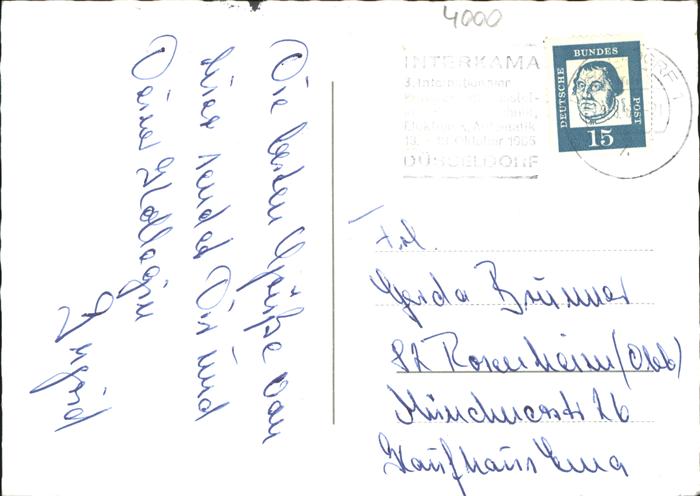 4000
INTERKAMA
3. Internationaler
Elektron. u. Automatik
13. - 19. Oktober 1965
DÜSSELDORF
DEUTSCHE
BUNDES
POST
15
Die besten Grüße von
hier sendet Dir und
Deine Kollegin
Ingrid
Frl.
Gerda Brunner
82 Rosenheim/(Obb)
Münchnerstr 26
Kaufhaus